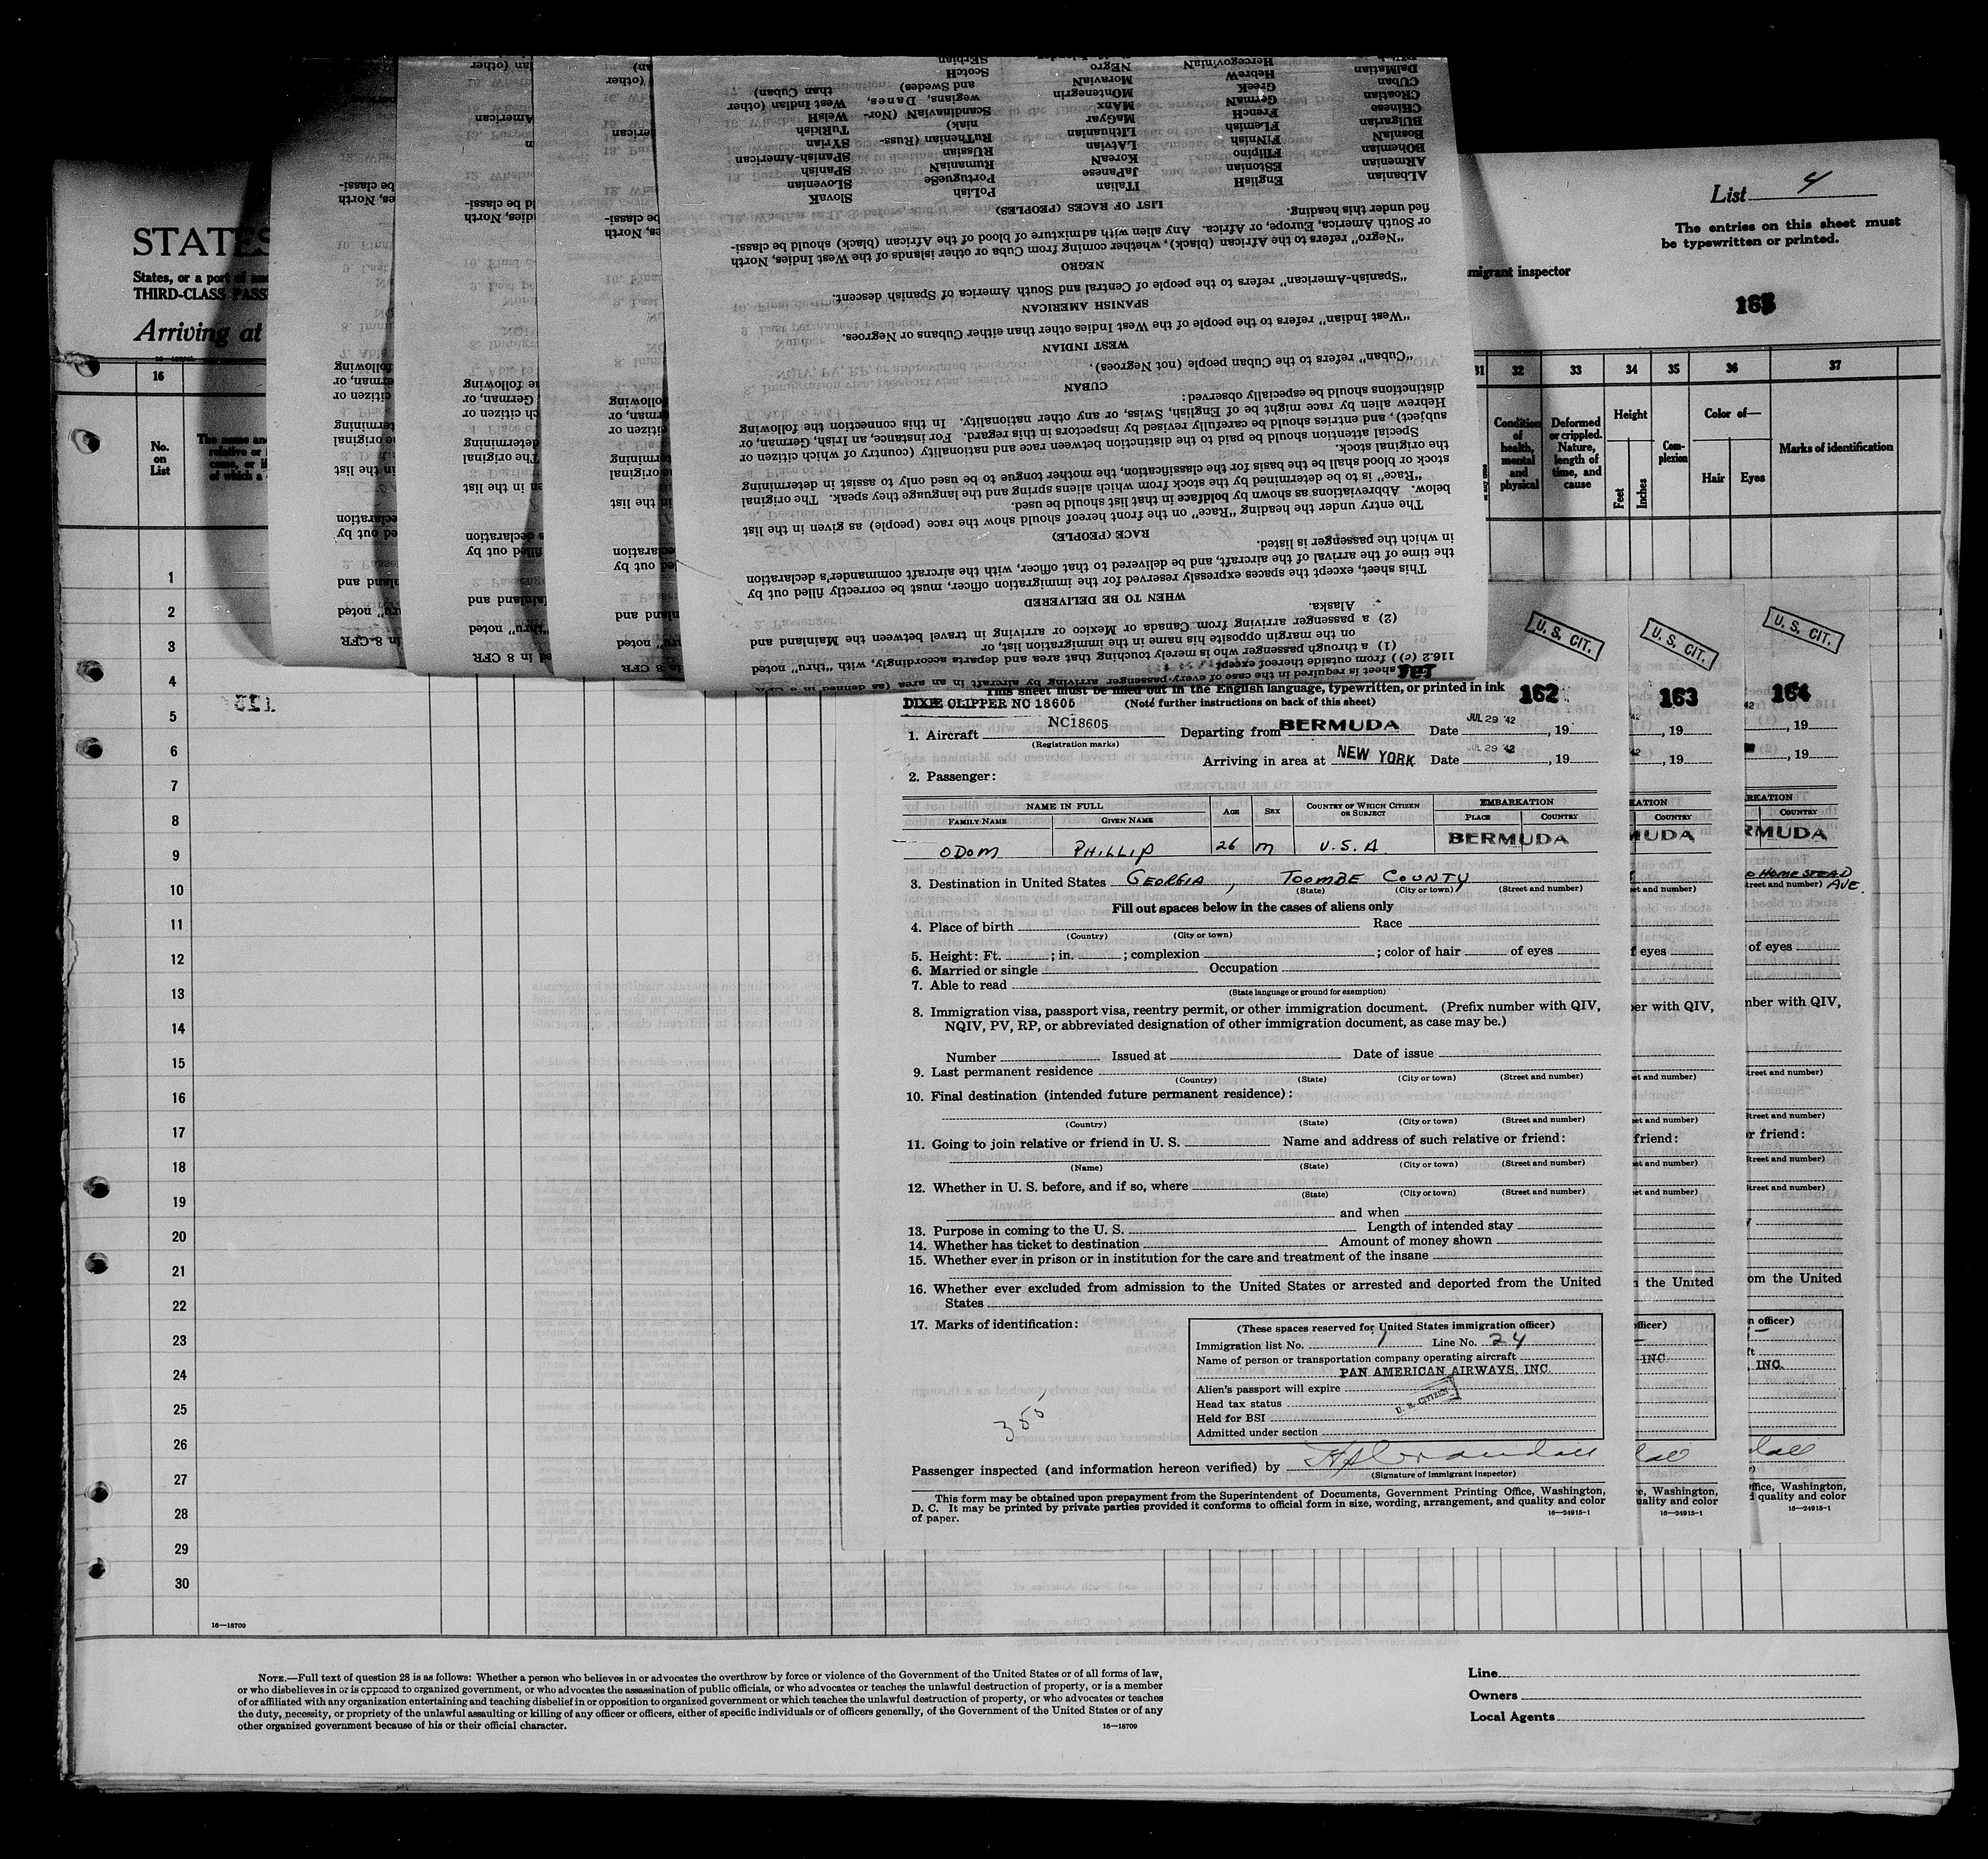 STATES
States, or a port of
THIRD-CLASS PASS
Arriving at
List 4
The entries on this sheet must
be typewritten or printed.
migrant inspector
16
No.
on
List
31
32
33
34
35
36
37
Condition
of
health,
mental
and
physical
Deformed
or crippled.
Nature,
length of
time, and
cause
Height
Feet
Inches
Com-
plexion
Color of—
Hair
Eyes
Marks of identification
1
2
3
4
5
6
7
8
9
10
11
12
13
14
15
16
17
18
19
20
21
22
23
24
25
26
27
28
29
30
16—18709
sheet is required in the case of every passenger arriving by aircraft in an area (as defined in 8 CFR
116.2 (c)) from outside thereof except:
(1) a through passenger who is merely touching that area and departs accordingly, with "thru" noted
on the margin opposite his name in the immigration list, or
(2) a passenger arriving from Canada or Mexico or arriving in travel between the Mainland and
Alaska.
WHEN TO BE DELIVERED
This sheet, except the spaces expressly reserved for the immigration officer, must be correctly filled out by
the time of the arrival of the aircraft, and be delivered to that officer, with the aircraft commander's declaration
in which the passenger is listed.
RACE (PEOPLE)
The entry under the heading "Race" on the front hereof should show the race (people) as given in the list
below. Abbreviations as shown by boldface in that list should be used.
"Race" is to be determined by the stock from which aliens spring and the language they speak. The original
stock or blood shall be the basis for the classification, the mother tongue to be used only to assist in determining
the original stock.
Special attention should be paid to the distinction between race and nationality (country of which citizen or
subject), and entries should be carefully revised by inspectors in this regard. For instance, an Irish, German, or
Hebrew alien by race might be of English, Swiss, or any other nationality. In this connection the following
distinctions should be especially observed:
CUBAN
"Cuban" refers to the Cuban people (not Negroes).
WEST INDIAN
"West Indian" refers to the people of the West Indies other than either Cubans or Negroes.
SPANISH AMERICAN
"Spanish-American" refers to the people of Central and South America of Spanish descent.
NEGRO
"Negro" refers to the African (black), whether coming from Cuba or other islands of the West Indies, North
or South America, Europe, or Africa. Any alien with admixture of blood of the African (black) should be classi-
fied under this heading.
LIST OF RACES (PEOPLES)
ALbanian EnglisH ITalian PoLish SlovaK
ARmenian EStonian JaPanese PortugueSe SLovenian
BOhemian FIlipino KoreaN RumaniaN SPaniSh
BosniaN FINnisH LAtvian RUssian SPanish-American
BUlgarian FLemish LIthuanian RuThenian (Russ- SYrian
CHinese FrencH MaGyar niak) TuRkish
CROatian GermaN MAnx Scandinavian (Nor- WelsH
CUban GreeK MOntenegrin wegians, Danes, West Indian (other
DalMatian HebreW MoraviaN and Swedes) than Cuban)
HercegoviniaN NEgro ScotcH
SErbian
This sheet must be filled out in the English language, typewritten, or printed in ink
DIXIE CLIPPER NC 18605 (Note further instructions on back of this sheet)
162
1. Aircraft NC18605 Departing from BERMUDA Date JUL 29 '42, 19
(Registration marks)
Arriving in area at NEW YORK Date JUL 29 '42, 19
2. Passenger:
NAME IN FULL
FAMILY NAME GIVEN NAME AGE SEX COUNTRY OF WHICH CITIZEN OR SUBJECT EMBARKATION PLACE COUNTRY
ODOM PHILLIP 26 M U.S.A BERMUDA
3. Destination in United States GEORGIA, TOOMBE COUNTY
(State) (City or town) (Street and number)
Fill out spaces below in the cases of aliens only
4. Place of birth Race
(Country) (City or town)
5. Height: Ft. ; in. ; complexion ; color of hair of eyes
6. Married or single Occupation
7. Able to read
(State language or ground for exemption)
8. Immigration visa, passport visa, reentry permit, or other immigration document. (Prefix number with QIV,
NQIV, PV, RP, or abbreviated designation of other immigration document, as case may be.)
Number Issued at Date of issue
9. Last permanent residence
(Country) (State) (City or town) (Street and number)
10. Final destination (intended future permanent residence):
(Country) (State) (City or town) (Street and number)
11. Going to join relative or friend in U. S. Name and address of such relative or friend:
(Name) (State) (City or town) (Street and number)
12. Whether in U. S. before, and if so, where
(State) (City or town) (Street and number)
and when
13. Purpose in coming to the U. S. Length of intended stay
14. Whether has ticket to destination Amount of money shown
15. Whether ever in prison or in institution for the care and treatment of the insane
16. Whether ever excluded from admission to the United States or arrested and deported from the United
States
17. Marks of identification:
(These spaces reserved for United States immigration officer)
Immigration list No. 1 Line No. 24
Name of person or transportation company operating aircraft
PAN AMERICAN AIRWAYS, INC.
Alien's passport will expire
U. S. CITIZEN
Head tax status
Held for BSI
Admitted under section
Passenger inspected (and information hereon verified) by
(Signature of immigrant inspector)
This form may be obtained upon prepayment from the Superintendent of Documents, Government Printing Office, Washington,
D. C. It may be printed by private parties provided it conforms to official form in size, wording, arrangement, and quality and color
of paper.
16—24915-1
U. S. CIT.
U. S. CIT.
163
, 19
, 19
COUNTRY
MUDA
U. S. CIT.
164
, 19
, 19
COUNTRY
RMUDA
HOMESTEAD
AVE.
NOTE.—Full text of question 28 is as follows: Whether a person who believes in or advocates the overthrow by force or violence of the Government of the United States or of all forms of law,
or who disbelieves in or is opposed to organized government, or who advocates the assassination of public officials, or who advocates or teaches the unlawful destruction of property, or is a member
of or affiliated with any organization entertaining and teaching disbelief in or opposition to organized government or which teaches the unlawful destruction of property, or who advocates or teaches
the duty, necessity, or propriety of the unlawful assaulting or killing of any officer or officers, either of specific individuals or of officers generally, of the Government of the United States or of any
other organized government because of his or their official character.
16—18709
Line
Owners
Local Agents